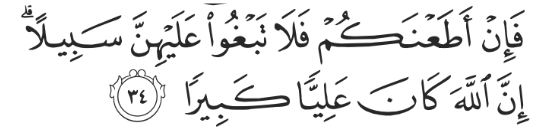 فَإِنْ أَطَعْنَكُمْ فَلَا تَبْغُوا۟ عَلَيْهِنَّ سَبِيلًا ۗ
إِنَّ ٱللَّهَ كَانَ عَلِيًّا كَبِيرًا ﴿٣٤﴾